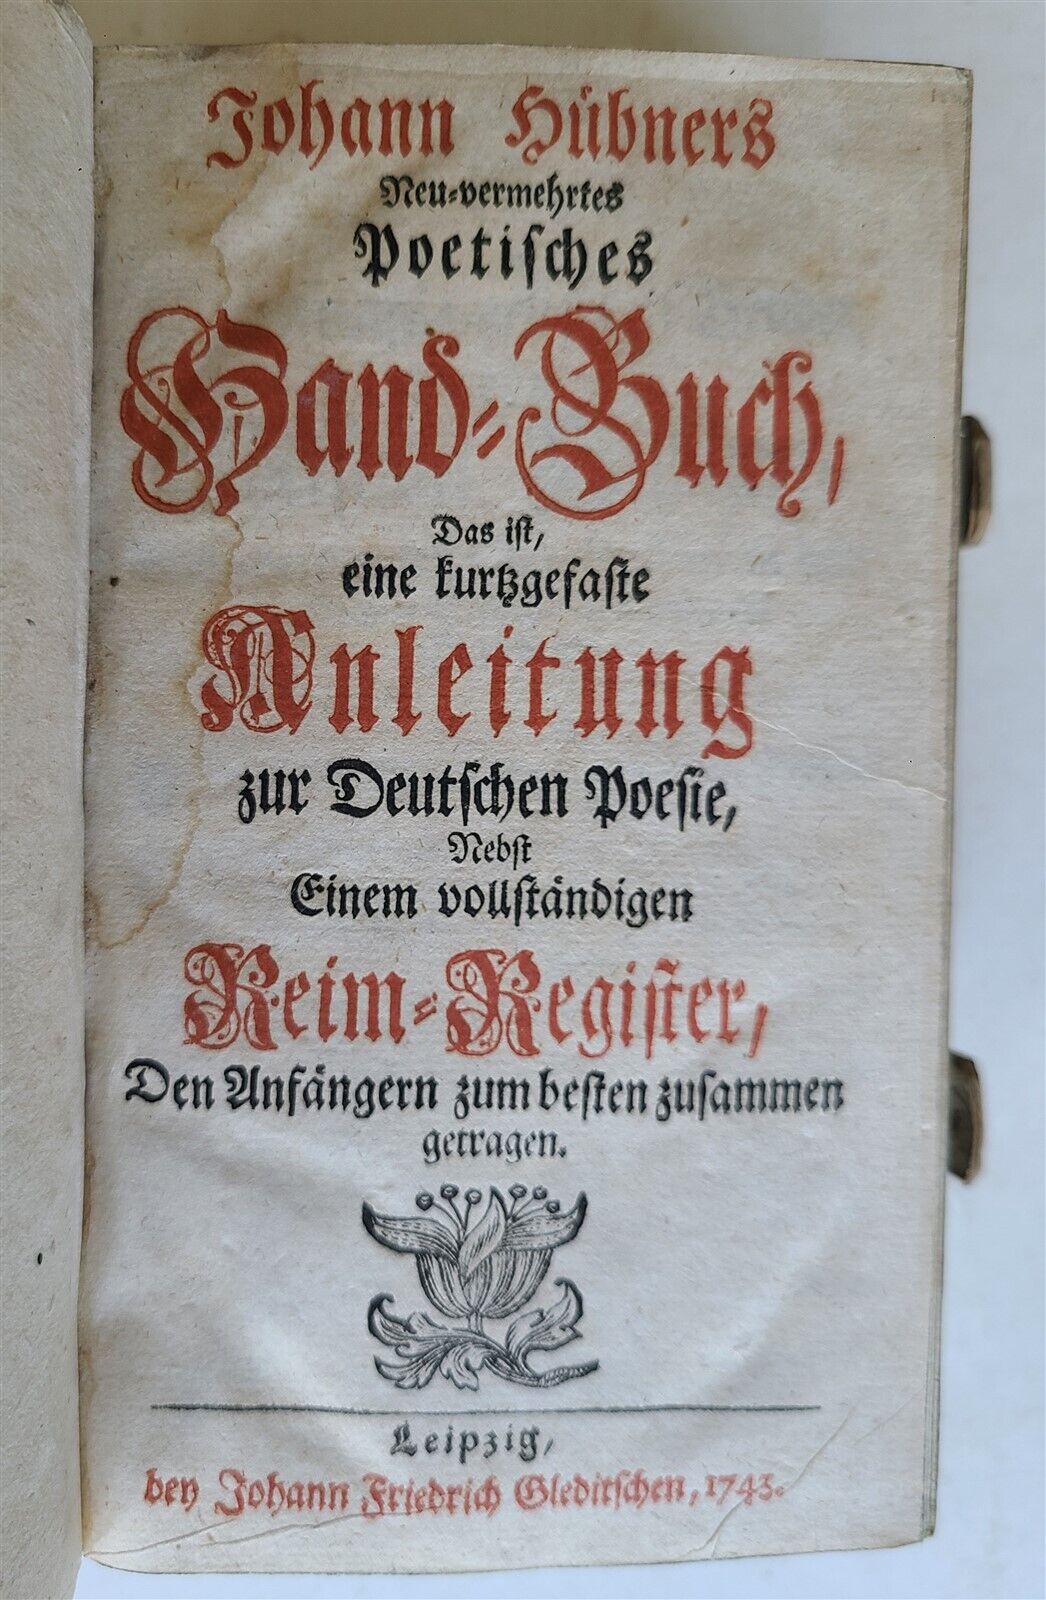 Johann Hübners
Neu-vermehrtes
Poetisches
Hand-Buch,
Das ist,
eine kurtzgefaste
Anleitung
zur Deutschen Poesie,
Nebst
Einem vollständigen
Reim-Register,
Den Anfängern zum besten zusammen
getragen.
Leipzig,
bey Johann Friedrich Gleditschen, 1743.